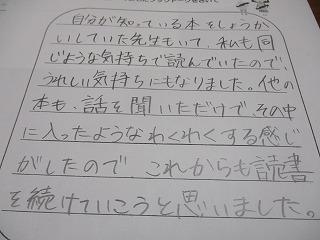 自分が知っている本をしょうか
いしていた先生もいて、私も同
じような気持ちで読んでいたので、
うれしい気持ちにもなりました。他の
本も、話を聞いただけで、その中
に入ったようなわくわくする感じ
がしたので、これからも読書
を続けていこうと思いました。